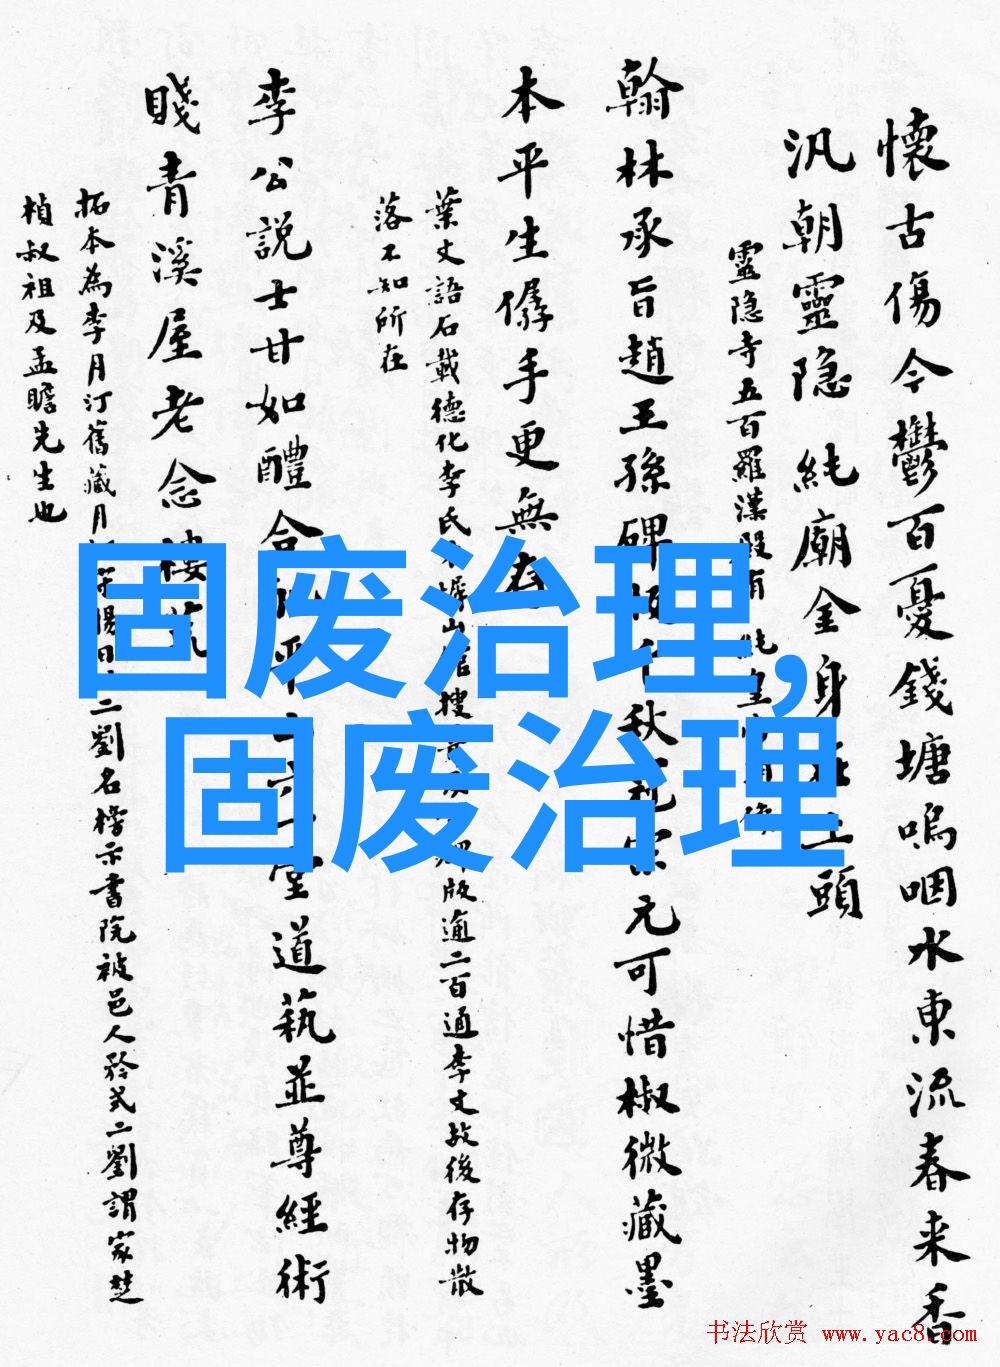 懷古傷今鬱百憂錢塘嗚咽水東流春来香
汎朝靈隐純廟金身在上頭
靈隐寺五百羅漢殿有純皇
翰林承旨趙王孫碑千秋元可惜椒微藏墨
本平生僝手更無存
葉文語石載德化李氏山館搜版逾二百通李文故後存物散
落不知所在
李公説士甘如醴合平山六一堂道蓺並尊經術
賤青溪屋老念樓荒
拓本為李月汀舊藏月二劉名榜示書院被邑人矜式二劉謂家楚
楨叔祖及孟瞻先生也
固废治理,
固废治理
书法欣赏 www.yac8.com